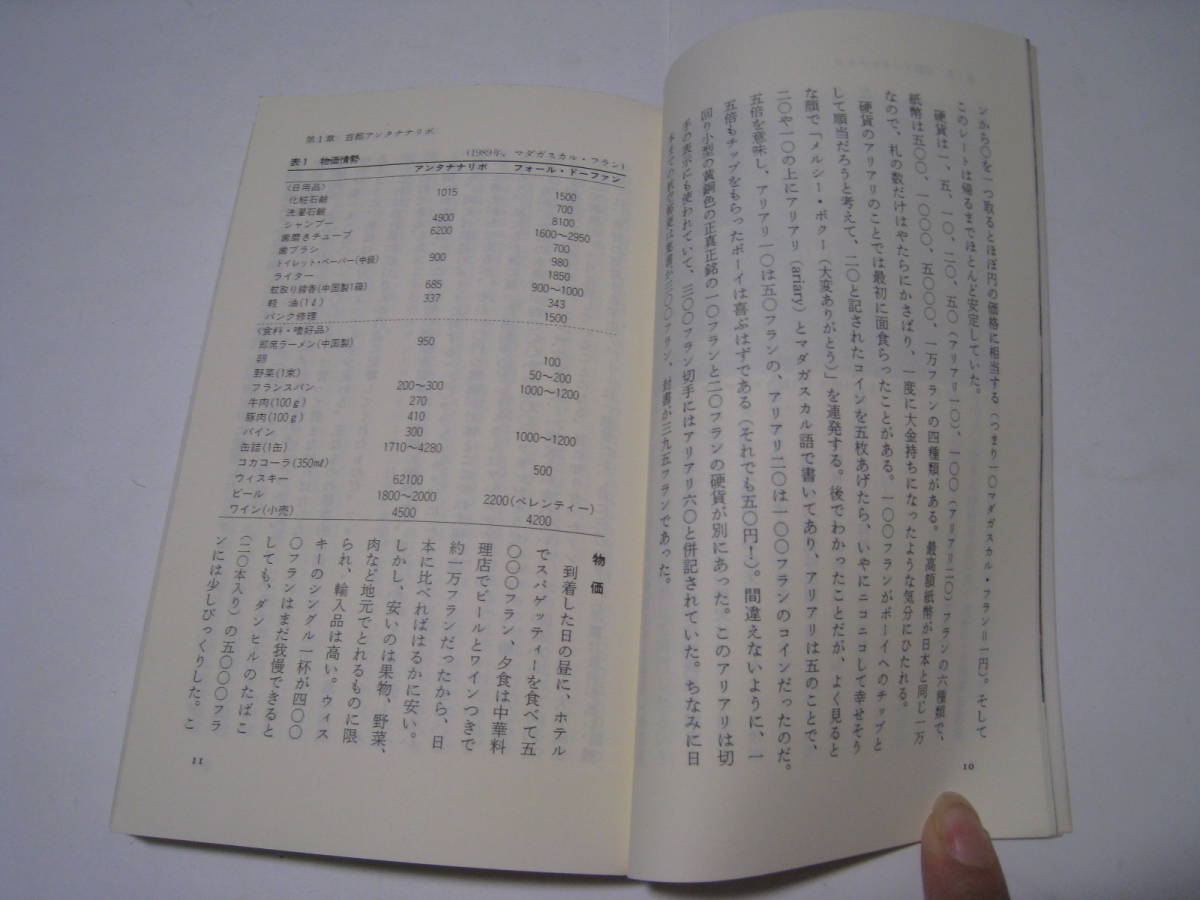 ンから〇を一つ取るとほぼ円の価格に相当する（つまり一〇マダガスカル・フラン＝一円）。そして
このレートは帰るまでほとんど安定していた。
硬貨は一、五、一〇、二〇、五〇（アリアリ一〇）、一〇〇（アリアリ二〇）フランの六種類で、
紙幣は五〇〇、一〇〇〇、五〇〇〇、一万フランの四種類がある。最高額紙幣が日本と同じ一万
なので、札の数だけはやたらにかさばり、一度に大金持ちになったような気分にひたれる。
硬貨のアリアリのことでは最初に面食らったことがある。一〇〇フランがボーイへのチップと
して順当だろうと考えて、二〇と記されたコインを五枚あげたら、いやにニコニコして幸せそう
な顔で「メルシー・ボクー（大変ありがとう）」を連発する。後でわかったことだが、よく見ると
二〇や一〇の上にアリアリ（ariary）とマダガスカル語で書いてあり、アリアリは五のことで、
五倍を意味し、アリアリ一〇は五〇フランの、アリアリ二〇は一〇〇フランのコインだったのだ。
五倍もチップをもらったボーイは喜ぶはずである（それでも五〇円！）。間違えないように、一
回り小型の黄銅色の正真正銘の一〇フランと二〇フランの硬貨が別にあった。このアリアリは切
手の表示にも使われていて、三〇〇フラン切手にはアリアリ六〇と併記されていた。ちなみに日
本までの航空郵便は葉書が三〇〇フラン、封書が三九五フランであった。
10
第1章 首都アンタナナリボ
表1 物価情勢 (1989年，マダガスカル・フラン)
アンタナナリボ フォール・ドーファン
〈日用品〉
化粧石鹸 1015 1500
洗濯石鹸 700
シャンプー 4900 8100
歯磨きチューブ 6200 1600〜2950
歯ブラシ 700
トイレット・ペーパー(中級) 900 980
ライター 1850
蚊取り線香(中国製1箱) 685 900〜1000
軽油(1ℓ) 337 343
パンク修理 1500
〈食料・嗜好品〉
即席ラーメン(中国製) 950
卵 100
野菜(1束) 50〜200
フランスパン 200〜300 1000〜1200
牛肉(100g) 270
豚肉(100g) 410
パイン 300 1000〜1200
缶詰(1缶) 1710〜4280
コカコーラ(350mℓ) 500
ウィスキー 62100
ビール 1800〜2000 2200(ベレンティー)
ワイン(小売) 4500 4200
物価
到着した日の昼に、ホテル
でスパゲッティーを食べて五
〇〇〇フラン、夕食は中華料
理店でビールとワインつきで
約一万フランだったから、日
本に比べればはるかに安い。
しかし、安いのは果物、野菜、
肉など地元でとれるものに限
られ、輸入品は高い。ウィス
キーのシングル一杯が四〇〇
〇フランはまだ我慢できると
しても、ダンヒルのたばこ
（二〇本入り）の五〇〇〇フラ
ンには少しびっくりした。こ
11